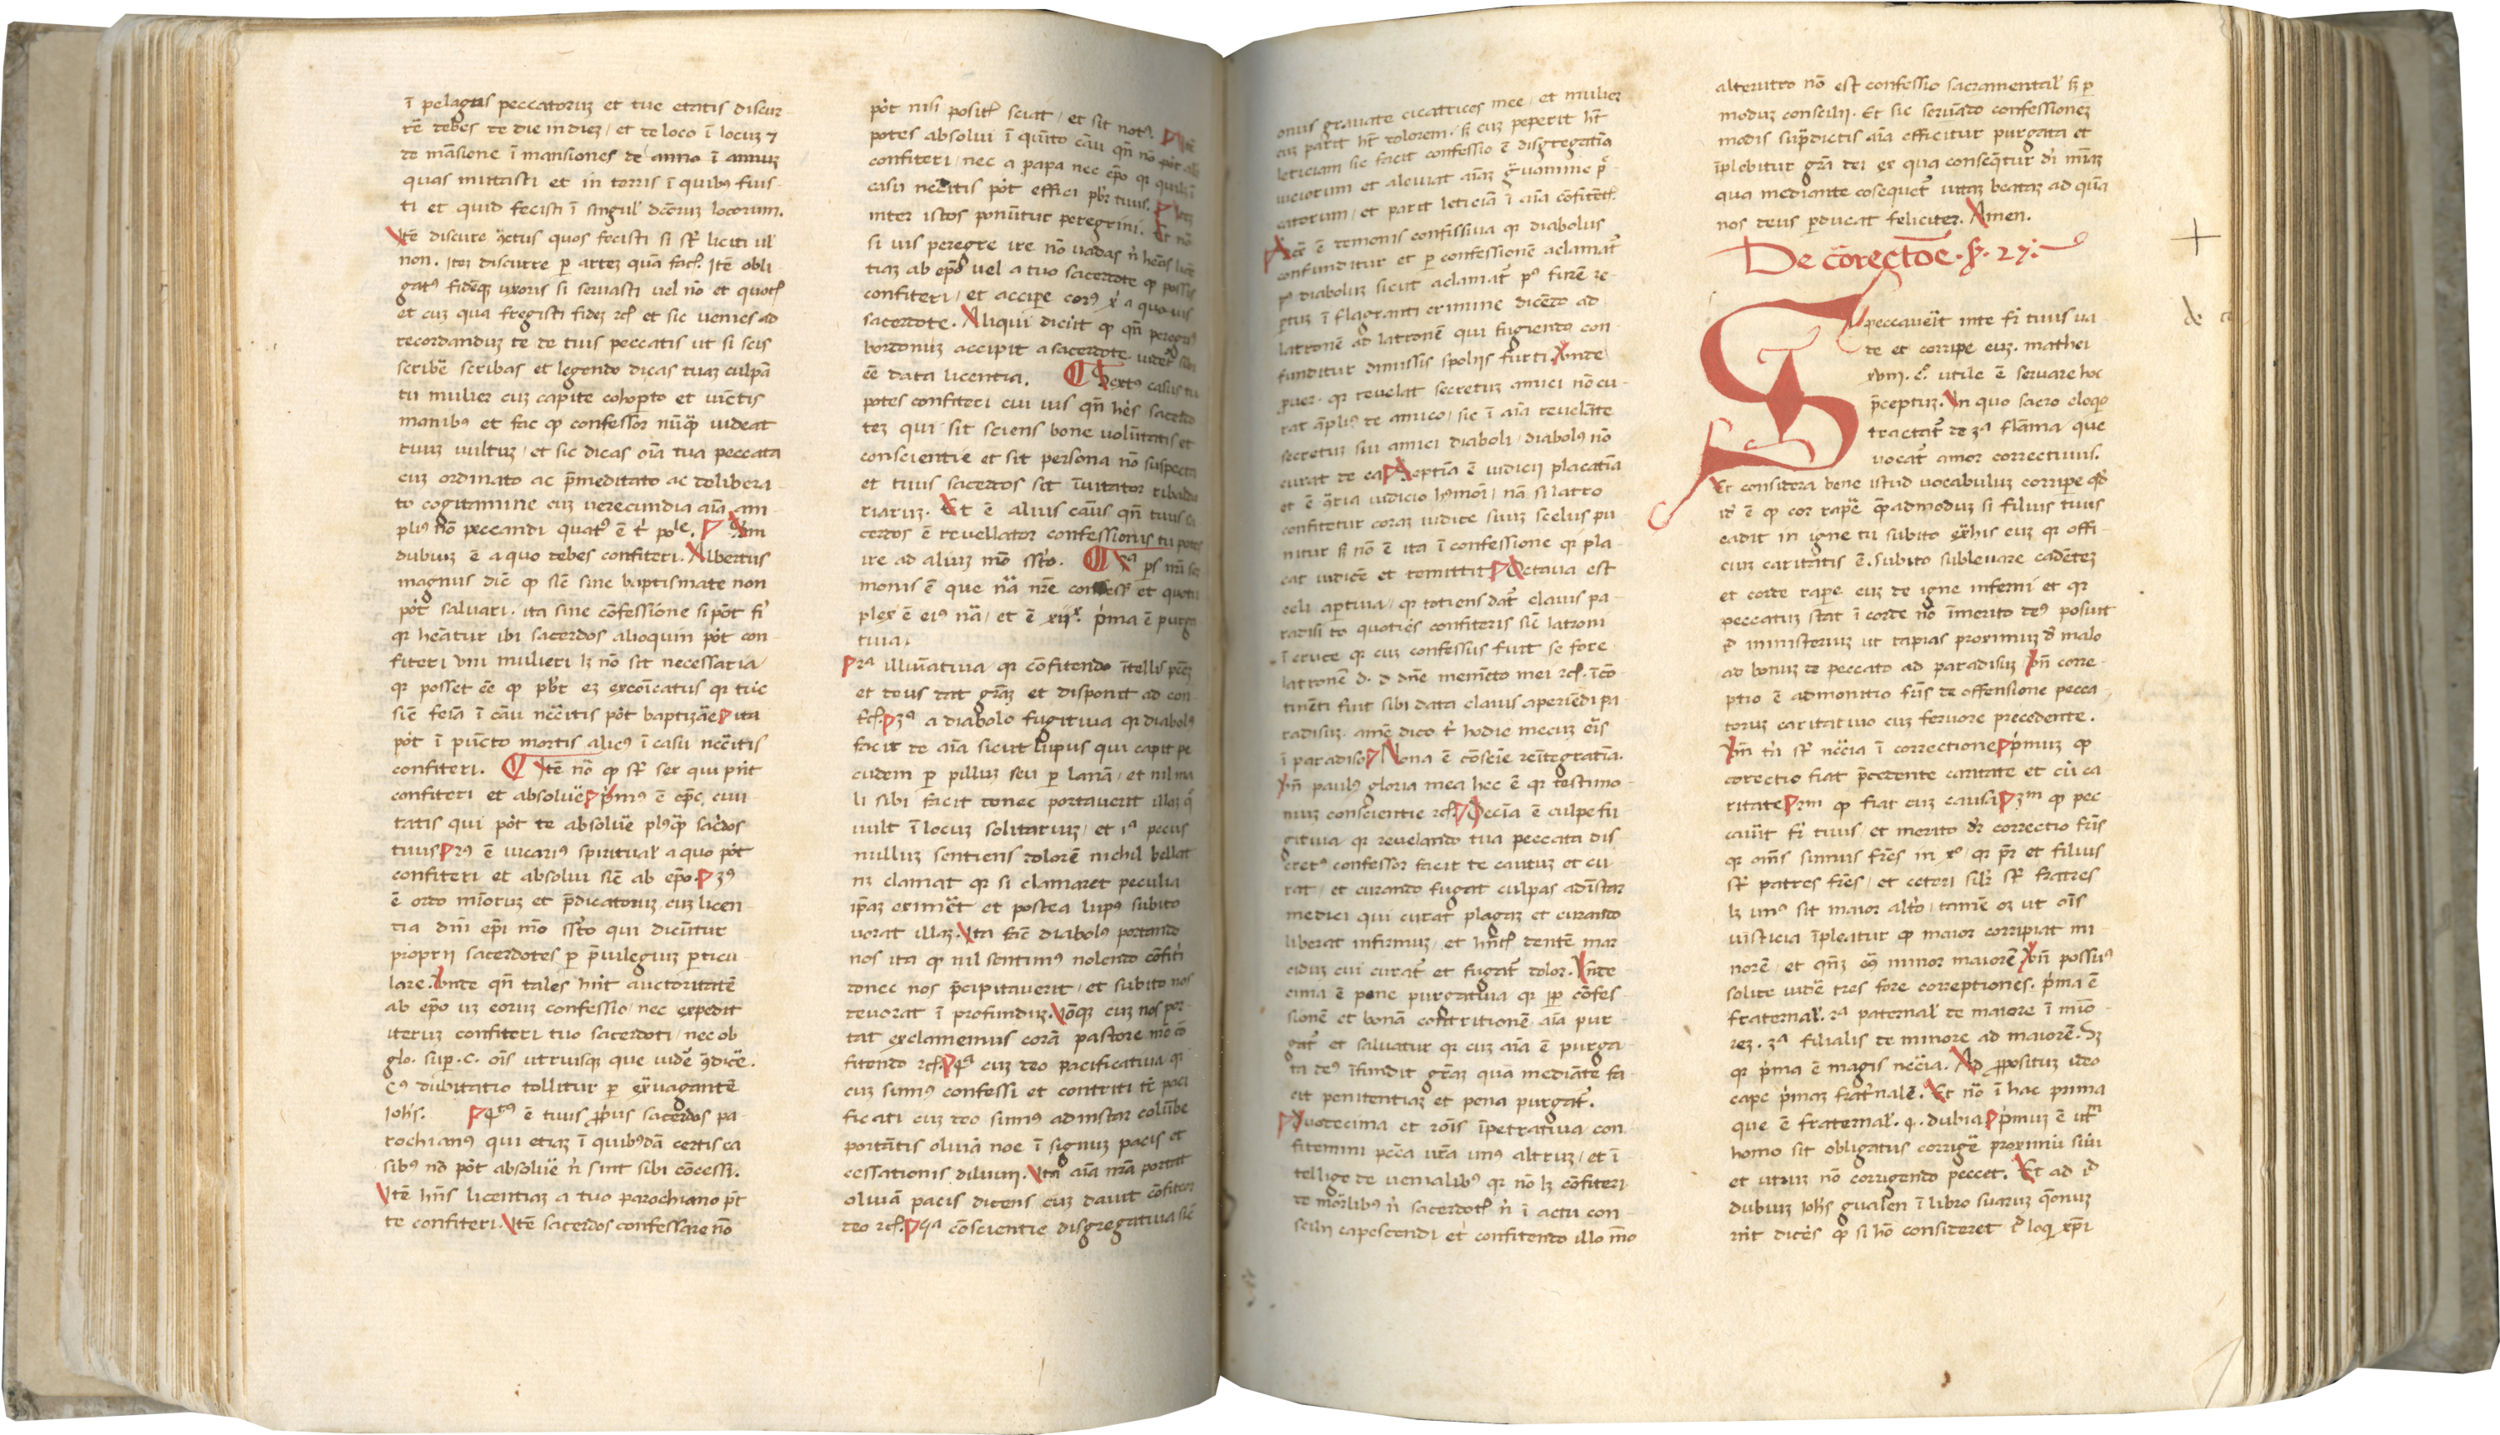 ī pelagus peccatoruʒ et tue etatis discur-
rē debes de die in dieʒ / et de loco ī locuʒ ⁊
de māsione ī mansiones de anno ī annuʒ
quas mutasti et in terris ī quibꝰ fuis-
ti et quid fecisti ī singul' dcōruʒ locorum.
Itē discure actus quos fecisti si st' liciti ul'
non. Iteʒ discurre ꝑ arteʒ quā fac. Itē obli
gatꝰ fideqʒ uxoris si servasti vel nō et quot
et cuʒ qua fregisti fideʒ ⁊c et sic venies ad
recordanduʒ te de tuis peccatis ut si scis
scribē scribas et legendo dicas tuaʒ culpā
tu mulier cuʒ capite cohopto et vinctis
manibꝰ et fac ꝙ confessor nūq̄ videat
tuuʒ vultuʒ / et sic dicas oīa tua peccata
cuʒ ordinato ac p̄meditato ac delibera
to cogitamine cuʒ verecundia aīa am
pliꝰ nō peccandi
dubiuʒ ē a quo debes confiteri. Albertus
magnus dic̄ ꝙ sic̄ sine baptismate non
pōt salvari. ita sine cōfessione si pōt fi'
qr heātur ibi sacerdos alioquin pōt con-
fiteri uni mulieri lʒ nō sit necessaria /
qr posset eē ꝙ pbr̄ eʒ excōicatus qr tūc
sic̄ feīa ī cāu nccītis pōt baptizāe ita
pōt ī pūcto mortis alicꝰ ī casu nccītis
confiteri. Itē nō ꝙ st' sex qui pn̄t
confiteri et absolvē p'mꝰ ē epc̄ civi
tatis qui pōt te absolvē plꝰq̄ sac'dos
tuus 2ꝰ ē vicariꝰ spiritual' a quo pōt
confiteri et absolvi sic̄ ab epō. 3ꝰ
ē ordo mīoruʒ et p̄dicatoruʒ cuʒ licen
tia dn̄i epī mō ss̄to qui dicūtur
proprii sacerdotes ꝑ p̄vilegiuʒ ꝑticu-
lare. Unde qn̄ tales hn̄t auctoritatē
ab epō uʒ eoruʒ confessio / nec expedit
iteruʒ confiteri tuo sacerdoti / nec ob
glo. sup. c. oīs utriusqʒ que vidē
cꝰ dubitatio tollitur ꝑ ex̄vagantē
Ioh̄s. 4tꝰ ē tuus ꝓpus sacerdos pa-
rochianꝰ qui etiaʒ ī quibꝰdā certis ca
sibꝰ nō pōt absolvē n̄ sint sibi cōcess.
Itē hn̄s licentiaʒ a tuo parochiano pōt
te confiteri. Itē sacerdos confessare nō
pōt nisi posit' sciat / et sit notꝰ.
potes absolvi ī quīto cāu qn̄ nō pōt
confiteri / nec a papa nec epō qr
casu nccītis pōt effici pbr̄ tuus.
inter istos ponūtur peregrini. Et nō
si vis peregre ire nō vadas n̄ heās
tiaʒ ab epō vel a tuo sacerdote ꝙ possis
confiteri / et accipe corꝰ x̄i a quovis
sacerdote. Aliqui dicūt ꝙ qn̄ peregꝰ
bordonuʒ accipit a sacerdote vider sibi
eē data licentia. Sextꝰ casus
potes confiteri cui vis qn̄ hēs sacerdo
teʒ qui sit sciens bone volūtatis et
conscientie et sit persona nō suspecta
et tuus sacerdos sit īvitator ribaldo
riaruʒ. Et ē alius cāus qn̄ tuus
cerdos ē revellator confessionis tu potes
ire ad aliuʒ mō ss̄to. 2a ps
monis ē que nā nr̄e confess' et quotu
plex ē eiꝰ nā / et ē xii. p'ma ē purga
tiva.
2a illumīativa / qr cōfitendo
et deus dat grāʒ et disponit ad con-
3a a diabolo fugitiva qr diabolꝰ
facit de aīa sicut lupus qui capit pe
cudem ꝑ pilluʒ seu ꝑ lanā / et nil ma
li sibi facit donec portaverit illaʒ
vult ī locuʒ solitariuʒ / et pecus
nulluʒ sentiens dolorē nichil bellat
nʒ clamat qr si clamaret peculia
ip̄aʒ et postea lupꝰ subito
vorat illaʒ. Ita facit diabolꝰ portando
nos ita ꝙ nil sentimꝰ nolendo cōfit'i
donec nos p̄cipitaverit / et subito nos
devorat ī profunduʒ. Iōqʒ cuʒ nos por
tat exclamemus corā pastore
fitendo ⁊c 4a cuʒ deo pacificativa qr
cuʒ sumꝰ confessi et contriti sic̄ paci
ficati cuʒ deo sumꝰ ad instar colūbe
portātis olivā noe ī signuʒ pacis et
cessationis diluvii. Ita aīa nr̄a portat
olivā pacis dicens cuʒ davit cōfitebor
deo ⁊c. 5a cōscientie disgregativa sic̄
onus gravate cicatrices mee / et mulier
cuʒ parit hēt dolorem. sʒ cuʒ peperit hēt
leticiam sic facit confessio ē disgregatīa
et aleviat aīaʒ gravamine
catorum / et parit leticiā ī aīa cōfitēt.
ē demonis confussiva qr diabolus
confunditur et ꝑ confessionē aclamat'
pꝰ diaboluʒ sicut aclamat' pꝰ furē re-
ꝑtuʒ ī flagranti crimine dicēdo ad
latronē ad latronē qui fugiendo con
funditur dimissis spoliis furti. Unde
puer. qr revelat secretuʒ amici nō cu-
rat āplius de amico / sic ī aīa revelāte
secretuʒ sui amici diaboli / diabolꝰ nō
curat de ea Septīa ē iudicii placatīa
et ē 9̄ria iudicio / nā si latro
confitetur coraʒ iudice suuʒ scelus pu
nitur sʒ nō ē ita ī confessione qr pla-
cat iudicē et remittit Octava est
celi aꝑtiva / qr totiens dat' clavis pa-
radisi to quoties confiteris sic̄ latroni
ī cruce qr cuʒ confessus fuit se fore
latronē d. d dn̄e memēto mei ⁊c. īcō
tinēti fuit sibi data clavis aperiēdi pa-
radisuʒ. amē dico t' hodie mecuʒ er̄is
ī paradiso Nona ē cōscīe reītegratīa.
Un̄ paulꝰ gloria mea hec ē qr testimo-
niuʒ conscientie ⁊c Decīa ē culpe fu
gitiva qr revelando tua peccata dis-
cretꝰ confessor facit te cautuʒ et cu-
rat / et curando fugat culpas ad īstar
medici qui curat plagaʒ et curando
liberat infirmuʒ / et dentē mar
ciduʒ cui curat' et fugat' dolor. Unde
cima ē pene purgativa qr ꝑ cōfes-
sionē et bonā contritionē aīa pur-
gat' et salvatur qr cuʒ aīa ē purga
ta deꝰ īfundit grāʒ quā mediāte fa-
cit penitentiaʒ et pena purgat'.
Duodecima et rōis īpetrativa con
fitemini pcc̄a vr̄a unꝰ altruʒ / et ī
tellige de venialibꝰ qr nō lʒ cōfiteri
de mōrlibꝰ n̄ sacerdot' n̄ ī actu con-
scilii capescendi et confitendo illo mō
alterutro nō est confessio sacramental' sʒ ꝑ
moduʒ conscilii. Et sic servādo confessioneʒ
modis sup̄dictis aīa efficitur purgata et
īplebitur grā dei ex qua conseq̄tur di mīaʒ
qua mediante cosequet' vitaʒ beataʒ ad quā
nos deus ꝑducat feliciter. Amen.
De cōrectōe. ẜ. 27.
Si peccaverit in te fr̄ tuus va
de et corripe euʒ. mathei
xviii. c. utile ē servare hoc
p̄ceptuʒ. In quo sacro eloqo
tractat' de 3a flāma / que
vocat' amor correctivus.
Et considera bene istud vocabuluʒ corripe qd'
id' ē ꝙ cor rapē quēadmoduʒ si filius tuus
cadit in igne tu subito ex̄his euʒ qr offi-
ciuʒ caritatis ē. subito sublevare cadēteʒ
et corde rapere euʒ de igne inferni et qr
peccatuʒ stat ī corde nō īmerito deꝰ posuit
ministeriuʒ ut rapias proximuʒ d' malo
ad bonuʒ de peccato ad paradisuʒ Un̄ corre-
ptio ē admonitio frīs de offensione pecca-
toruʒ caritativo cuʒ fervore precedente.
Un̄ tria st' nccīa ī correctione p'muʒ ꝙ
corectio fiat p̄cedente caritate et cū ca
ritate 2m ꝙ fiat cuʒ causa 3m ꝙ pec
cav̄it fr̄ tuus / et merito dr̄ correctio frīs
qr om̄s sumus fr̄es in xo qr pr̄ et filius
st' patres fr̄es / et ceteri silr' st' fratres
lʒ unꝰ sit maior alt'o / tamē oʒ ut oīs
iusticia īpleatur ꝙ maior corripiat mi
norē / et qn̄qʒ minor maiorē Un̄ possuꝰ
solite vidē tres fore correptiones. p'ma ē
fraternal'. 2a paternal' de maiore ī mīo-
reʒ. 3a filialis de minore ad maiorē. Sʒ
qr p'ma ē magis nccīa. Ad ꝓpositʒ ideo
cape p'maʒ frat'nalē. Et nō ī hac prima
que ē fraternal'. 4. dubia p'muʒ ē utʒ
homo sit obligatus corrigē proximū suū
et utruʒ nō corrigendo peccet. Et ad id
dubiuʒ Ioh̄s gualen̄ ī libro suaruʒ
nit dicēs ꝙ si hō consideret